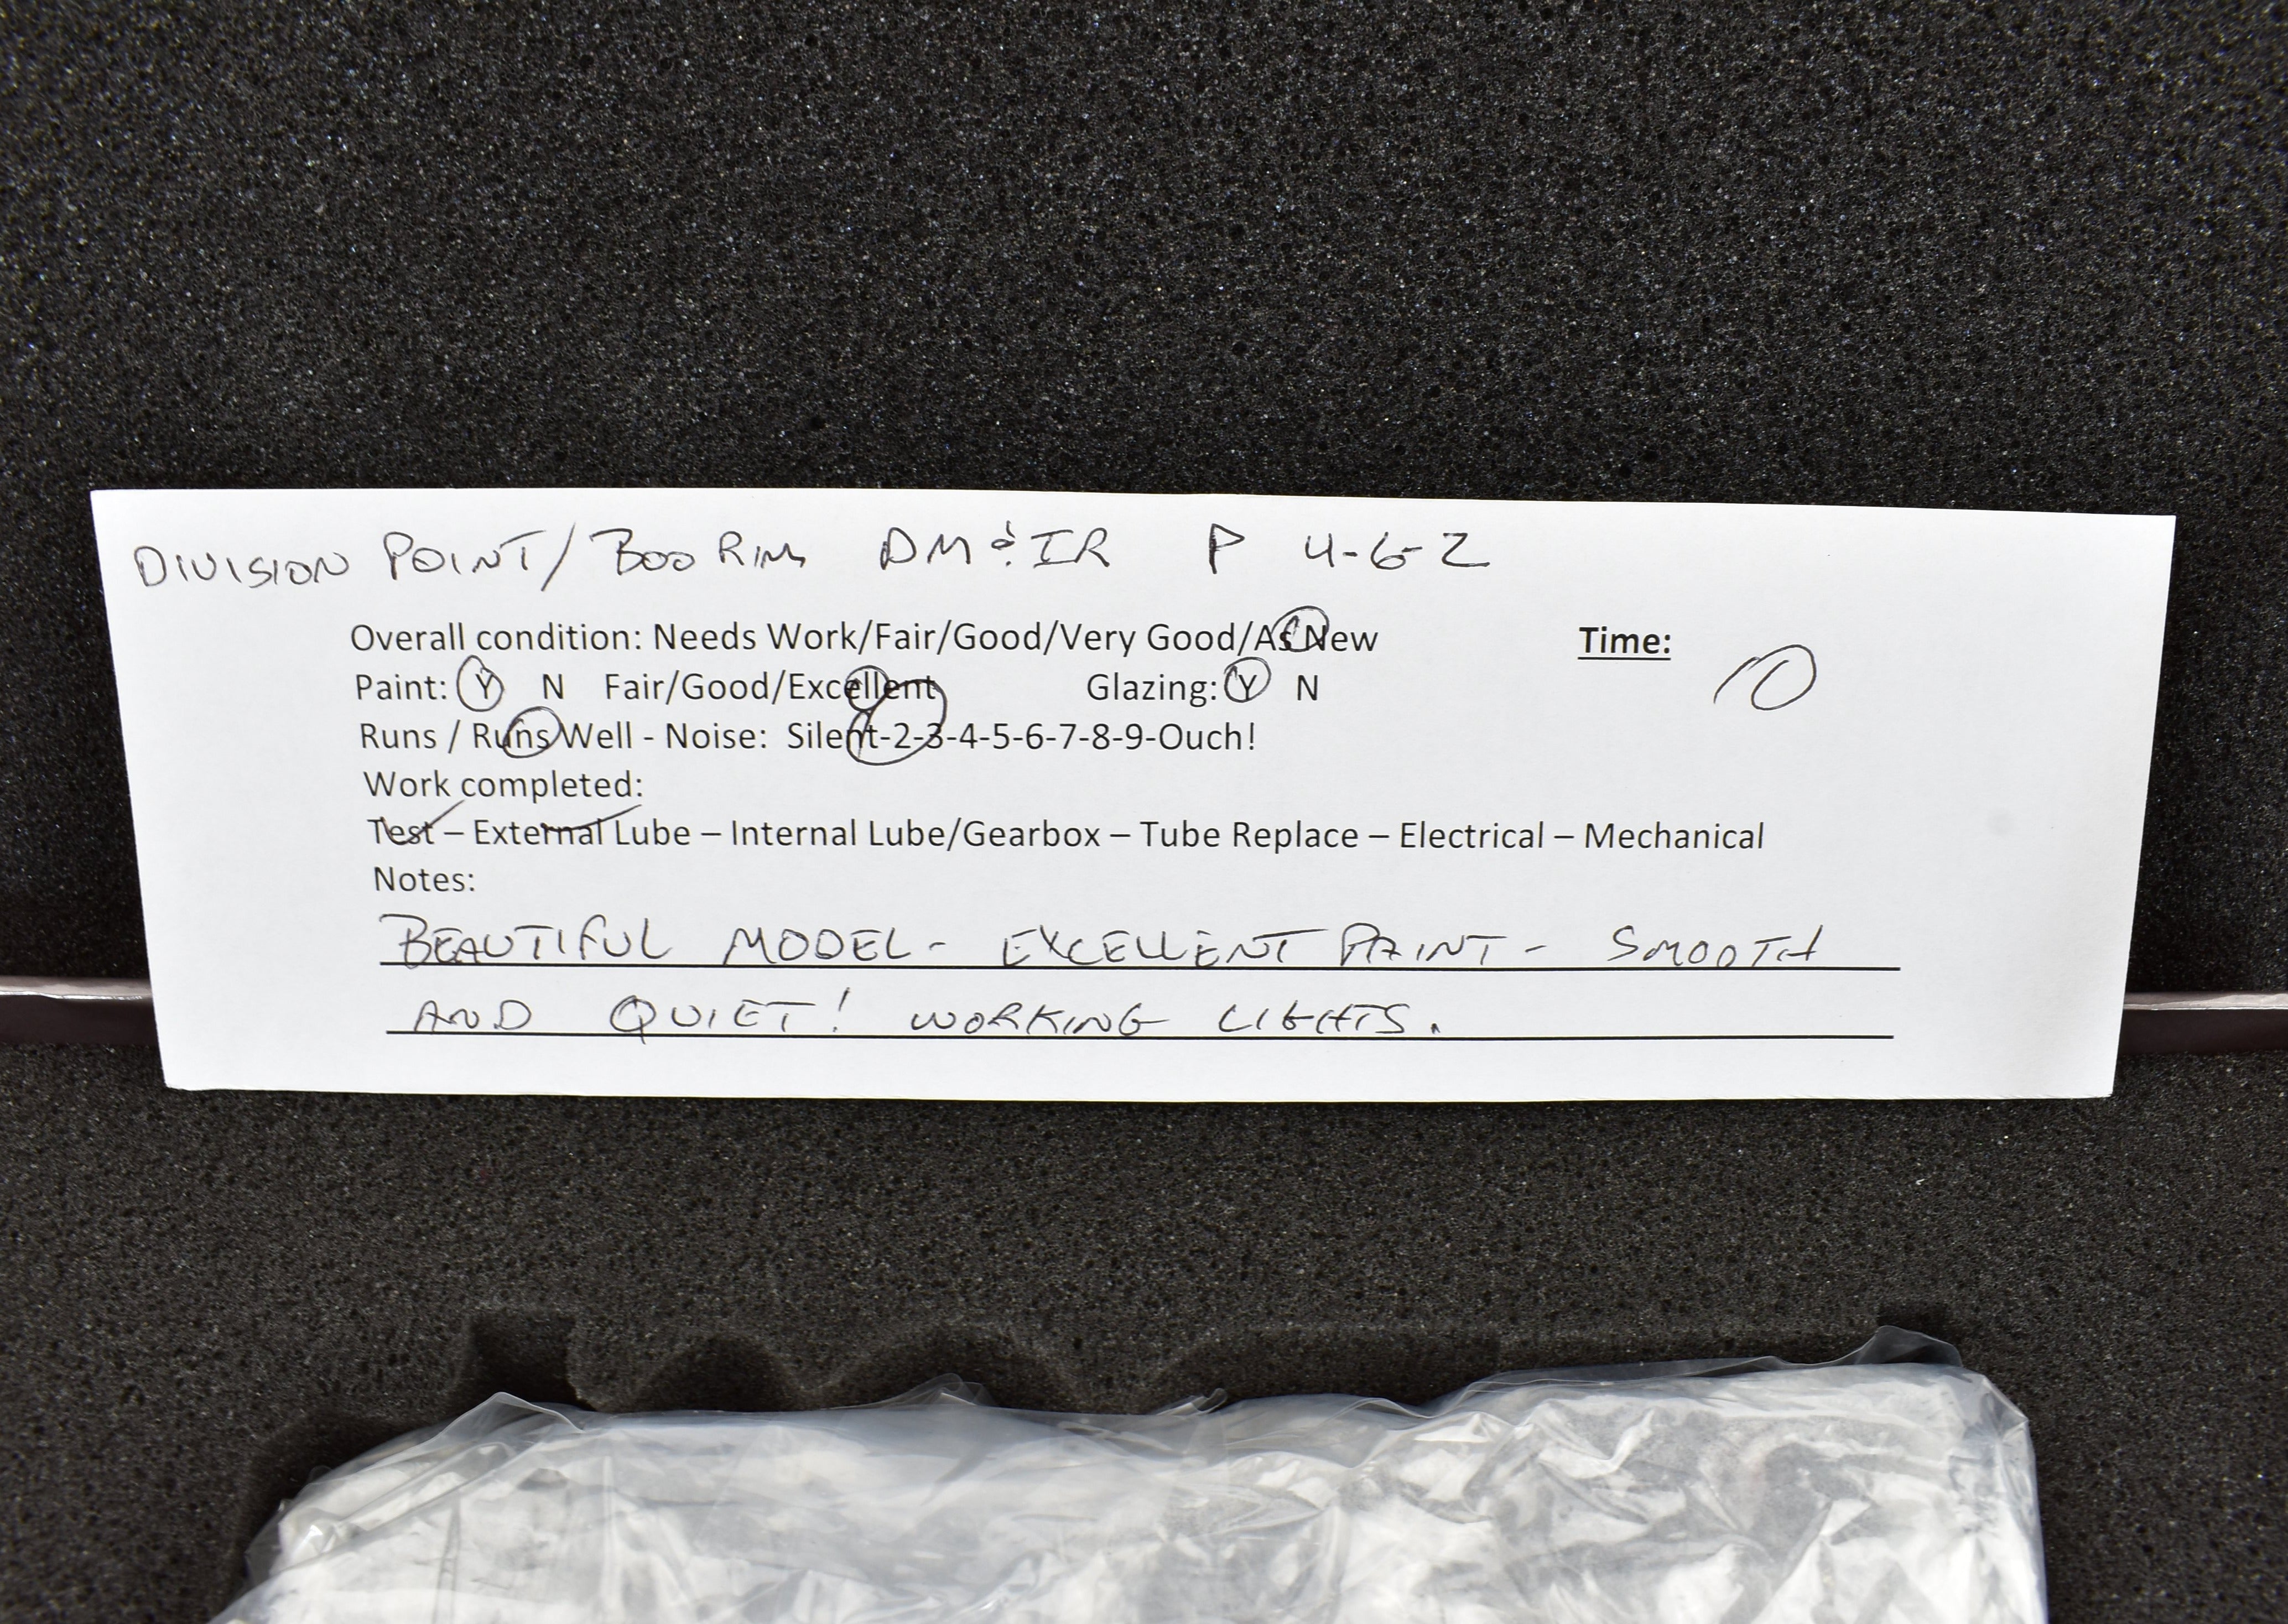 DIVISION POINT/BOO RIM DM&IR P 4-6-2
Overall condition: Needs Work/Fair/Good/Very Good/As New Time: 10
Paint: Y N Fair/Good/Excellent Glazing: Y N
Runs / Runs Well - Noise: Silent-2-3-4-5-6-7-8-9-Ouch!
Work completed:
Test – External Lube – Internal Lube/Gearbox – Tube Replace – Electrical – Mechanical
Notes:
BEAUTIFUL MODEL - EXCELLENT PAINT - SMOOTH
AND QUIET! WORKING LIGHTS.